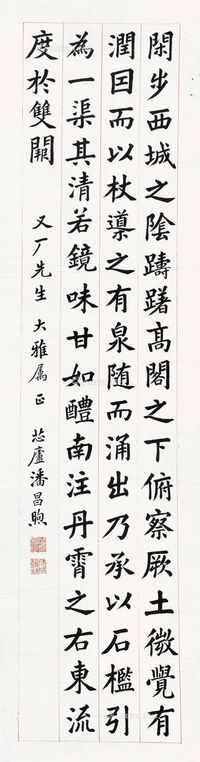 閑步西城之陰躊躇高閣之下俯察厥土微覺有
潤因而以杖導之有泉随而涌出乃承以石檻引
為一渠其清若鏡味甘如醴南注丹霄之右東流
度於雙闕
又厂先生 大雅属正 芯廬潘昌煦